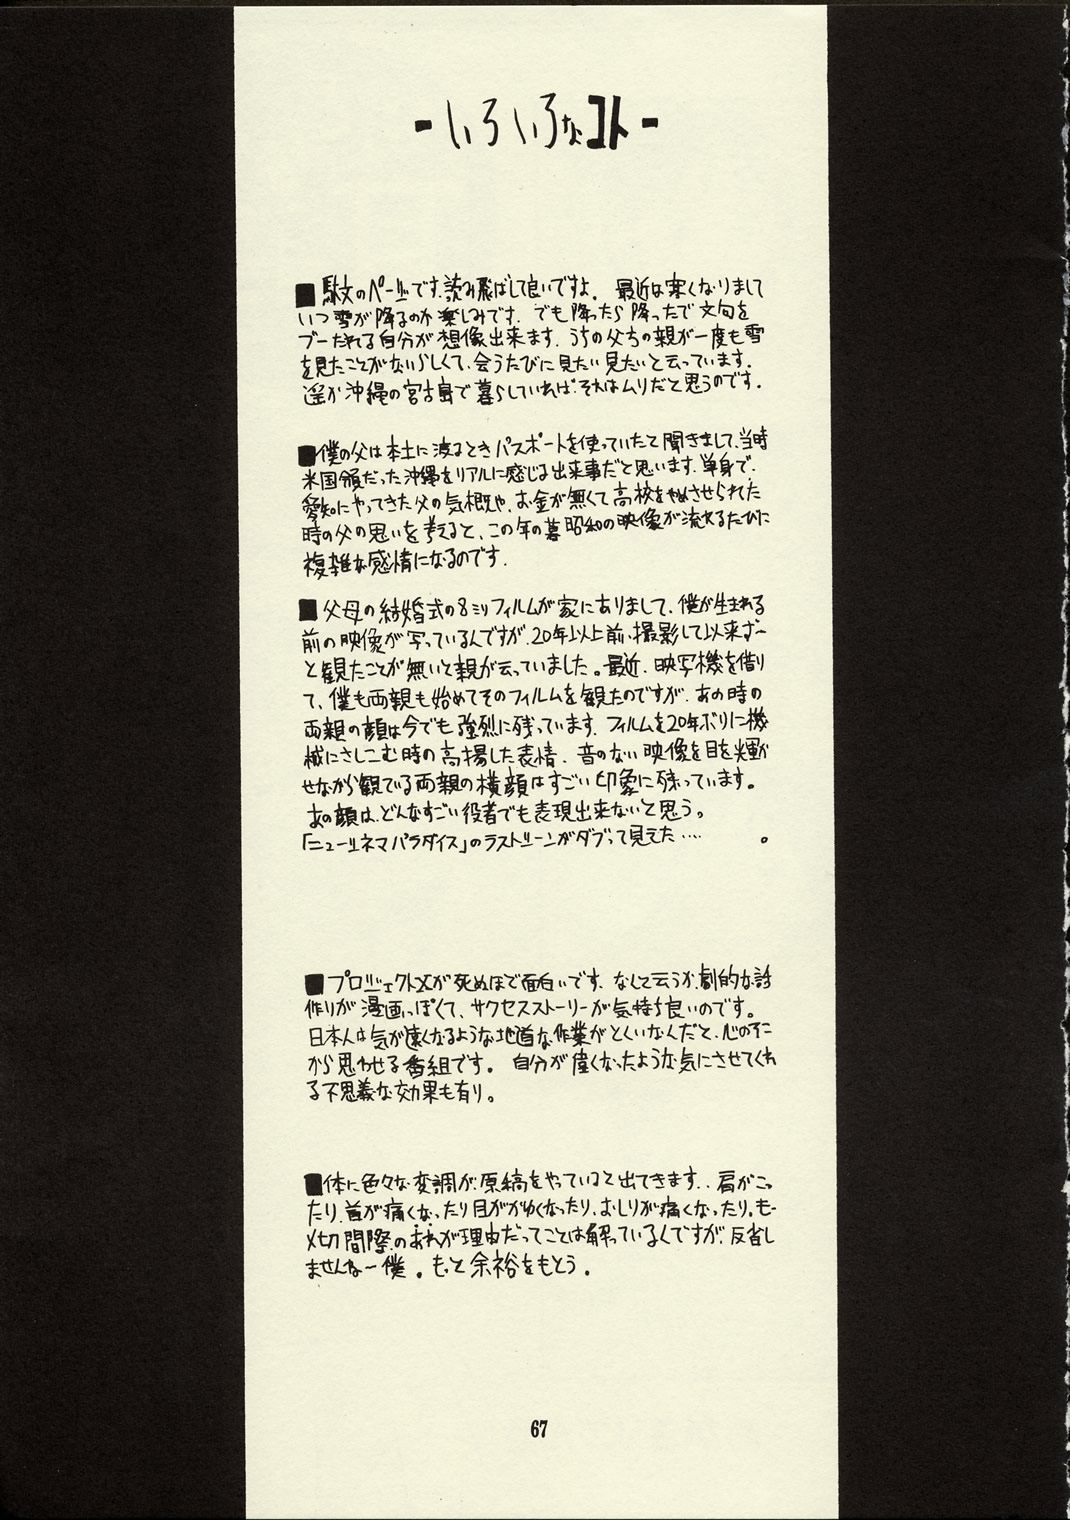 -いろいろなコト-
■駄文のページです、読み飛ばして良いですよ。 最近は寒くなりまして
いつ雪が降るのか楽しみです。でも降ったら降ったで文句を
ブーたれてる自分が想像出来ます。うちの父ちの親が一度も雪
を見たことがないらしくて、会うたびに見たい見たいと云っています。
遥か沖縄の宮古島で暮らしていれば、それはムリだと思うのです。
■僕の父は本土に渡るときパスポートを使っていたと聞きまして、当時
米国領だった沖縄をリアルに感じる出来事だと思います。単身で、
愛知にやってきた父の気概や、お金が無くて高校をやめさせられた
時の父の思いを考えると、この年の暮昭和の映像が流れるたびに
複雑な感情になるのです.
■父母の結婚式の8ミリフィルムが家にありまして、僕が生まれる
前の映像が写っているんですが、20年以上前、撮影して以来ずー
と観たことが無いと親が云っていました。最近、映写機を借り
て、僕も両親も始めてそのフィルムを観たのですが、あの時の
両親の顔は今でも強烈に残っています。フィルムを20年ボリに機
械にさしこむ時の高揚した表情、音のない映像を目を輝か
せながら観ている両親の横顔はすごい印象に残っています。
あの顔は、どんなすごい役者でも表現出来ないと思う。
「ニューシネマパラダイス」のラストシーンがダブって見えた‥‥ 。
■プロジェクトXが死ぬほで面白いです、なんて云うか、劇的な話
作りが漫画っぽくて、サクセスストーリーが気持ち良いのです。
日本人は気が遠くなるような地道な作業がとくいなんだと、心のそこ
から思わせる番組です。 自分が偉くなったような気にさせてくれ
る不思義な効果も有り。
■体に色々な変調が原稿をやっていると出てきます.. 肩がこっ
たり、首が痛くなったり目ががゆくなったり、おしりが痛くなったり。もー
〆切間際のあれが理由だってことは解っているくですが、反省し
ませんねー僕。もっと余裕をもとう.
67